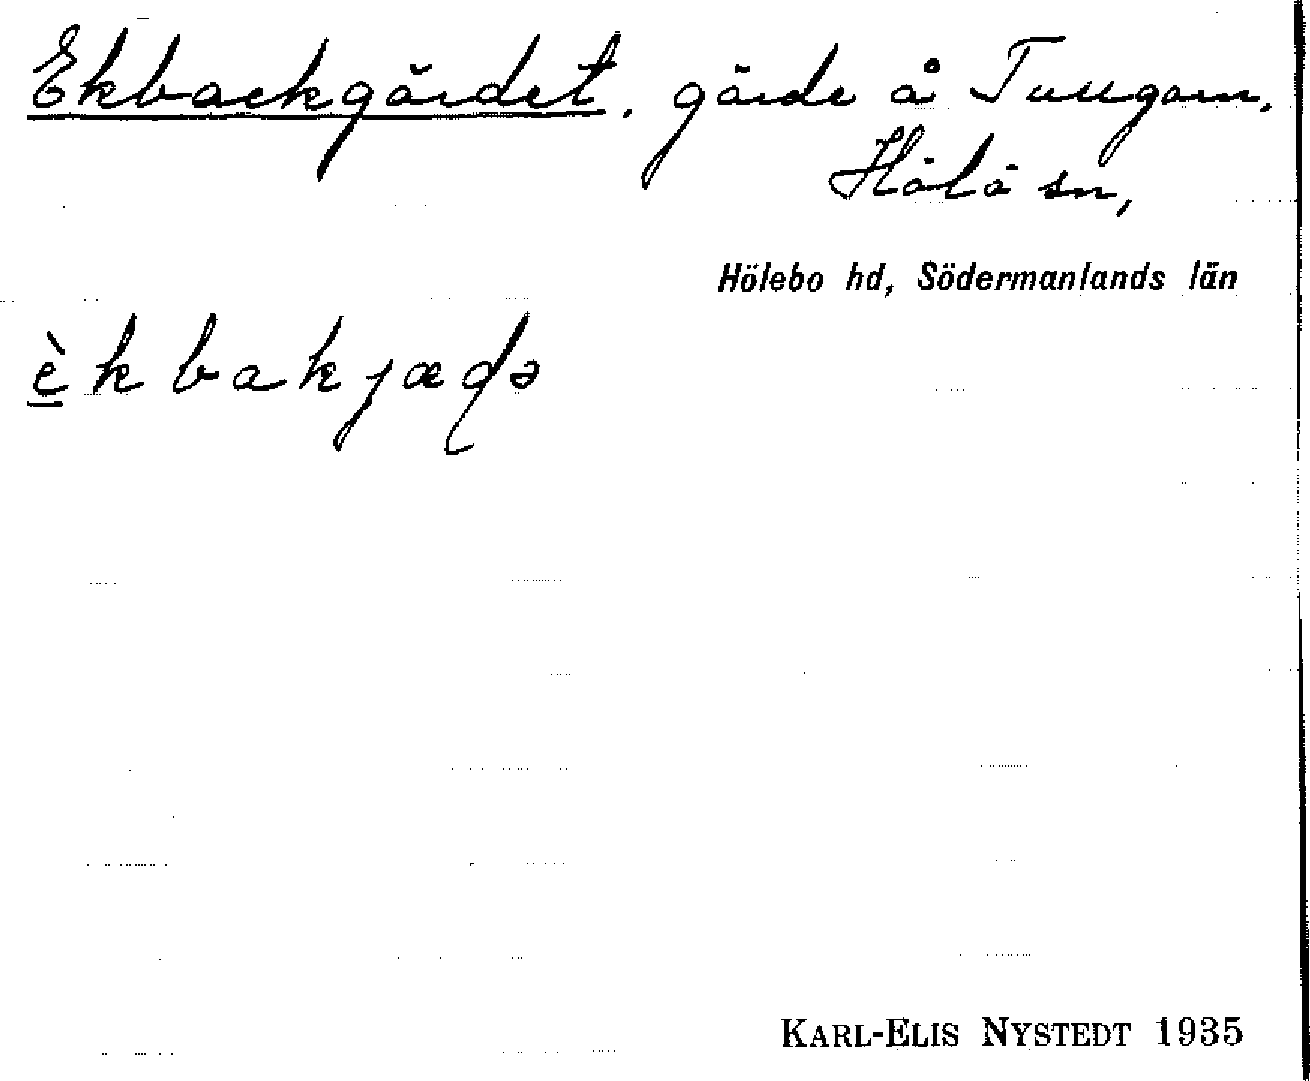 Ekbackgärdet, gärde å Tullgarn,
Hölö sn,
Hölebo hd, Södermanlands län
è̱kbakjæḍə
KARL-ELIS NYSTEDT 1935